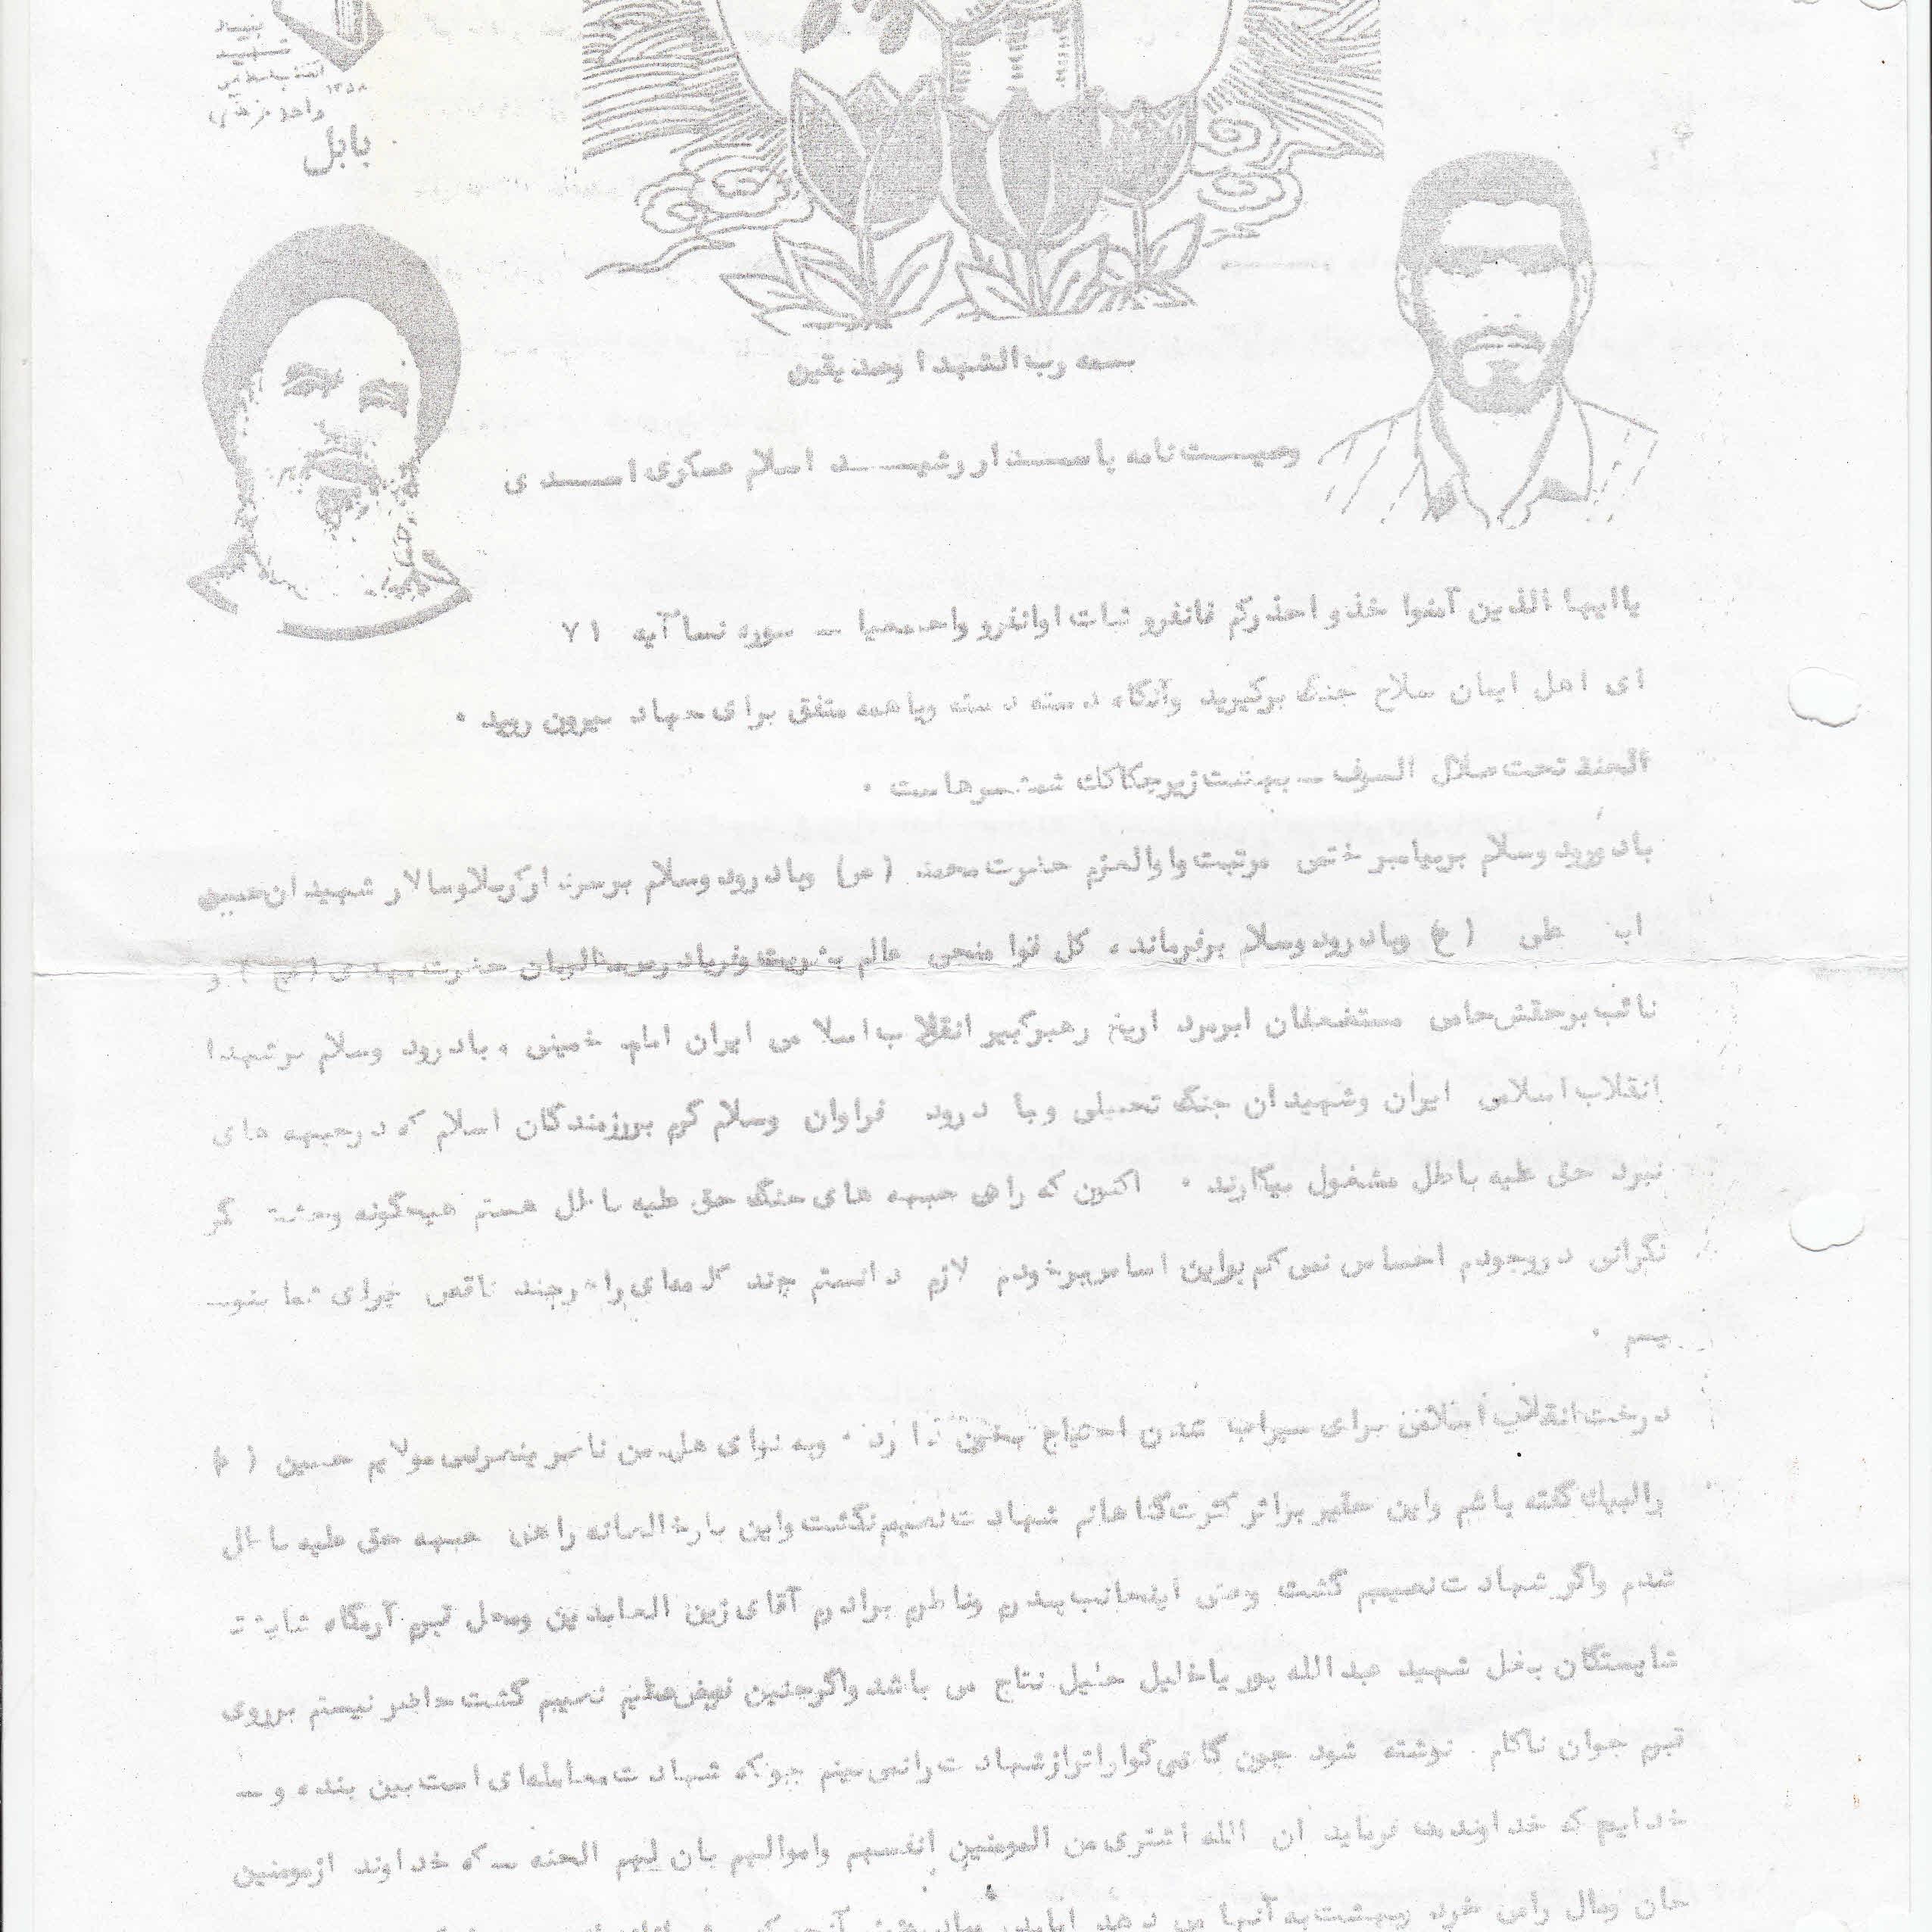 بنیاد
شهید
انقلاب اسلامی
۱۳۵۸
واحد مرکزی
بابل
بسمه رب الشهدا وصدیقین
وصیت نامه پاسدار شهید اسلام عسکری اسدی
یا ایها الذین آمنوا خذو احذرکم فانفرو ثبات اوانفرو واحدمعیا - سوره نسا آیه ۷۱
ای اهل ایمان سلاح جنگ برگیرید وآنگاه دسته دسته ویاهمه متفق برای جهاد بیرون روید .
الجنة تحت ضلال السوف - بهشت زیر چکاکک شمشیرهاست .
بادرورد وسلام برپیامبر ختمی مرتبت واوالعزم حضرت محمد (ص) وبادرود وسلام برسردار کربلا وسالار شهیدان حسین
اب علی (ع) وبادرود وسلام برفرمانده کل قوا منجی عالم بشریت وفریادرس مظلومان حضرت مهدی (عج) و
نائب برحقش حامی مستضعفان ابرمرد تاریخ رهبرکبیر انقلاب اسلامی ایران امام خمینی ، بادرود وسلام برشهدا
انقلاب اسلامی ایران وشهیدان جنگ تحمیلی وبا درود فراوان وسلام گرم برزمندگان اسلام که درجبهه های
نبرد حق علیه باطل مشغول پیکارند . اکنون که راهی جبهه های جنگ حق علیه باطل هستم هیچگونه وحشت
نگرانی دروجودم احساس نمی کم براین اساس برخودم لازم دانستم چند کلمه‌ای را هرچند ناقص برای شما بنو-
یسم .
درخت انقلاب اسلامی برای سیراب شدن احتیاج بخون دارد . وبه نوای هل من ناصر ینصرنی مولایم حسین (ع
رالبیک گفته باشم واین حقیر براثر کثرت گناهانم شهادت نصیبم نگشت واین بارخالصانه راهی جبهه حق علیه باطل
شدم واگر شهادت نصیبم گشت وصی اینجانب پدرم وناظرم برادرم آقای زین العابدین ومحل قبرم آرمگاه
شایستگان بغل شهید عبدالله پور یاخلیل خلیل نتاج می باشد واگرچنین فیض عظیم نصیبم گشت حاضر نیستم برروی
قبرم جوان ناکام نوشته شود چون کامی گواراترازشهادت رانمی بینم چونکه شهادت معامله‌ای است بین بنده و -
خدایش که خداوند می فرماید ان الله اشتری من المومنین انفسهم واموالهم بان لهم الجنه - که خداوند ازمومنین
جان ومال رامی خرد وبهشت به آنها می دهد